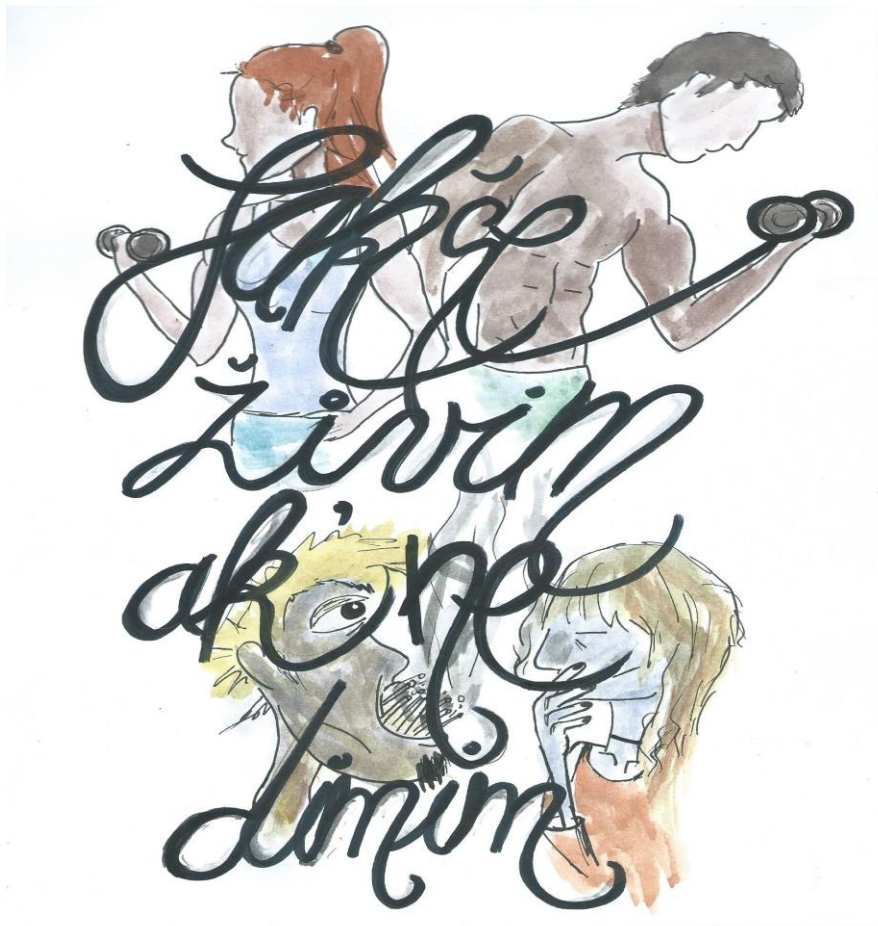 Lakše
živim
ak' ne
dimim